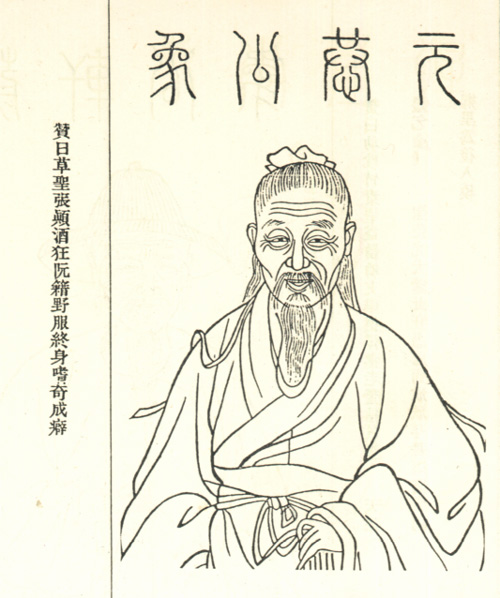 元慈公象
贊曰草聖張顛酒狂阮籍野服終身嗜奇成癖